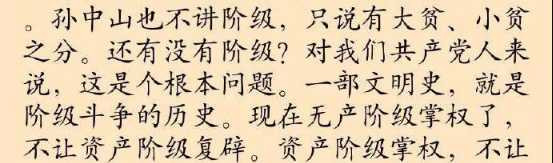 。孙中山也不讲阶级，只说有大贫、小贫
之分。还有没有阶级？对我们共产党人来
说，这是个根本问题。一部文明史，就是
阶级斗争的历史。现在无产阶级掌权了，
不让资产阶级复辟。资产阶级掌权，不让